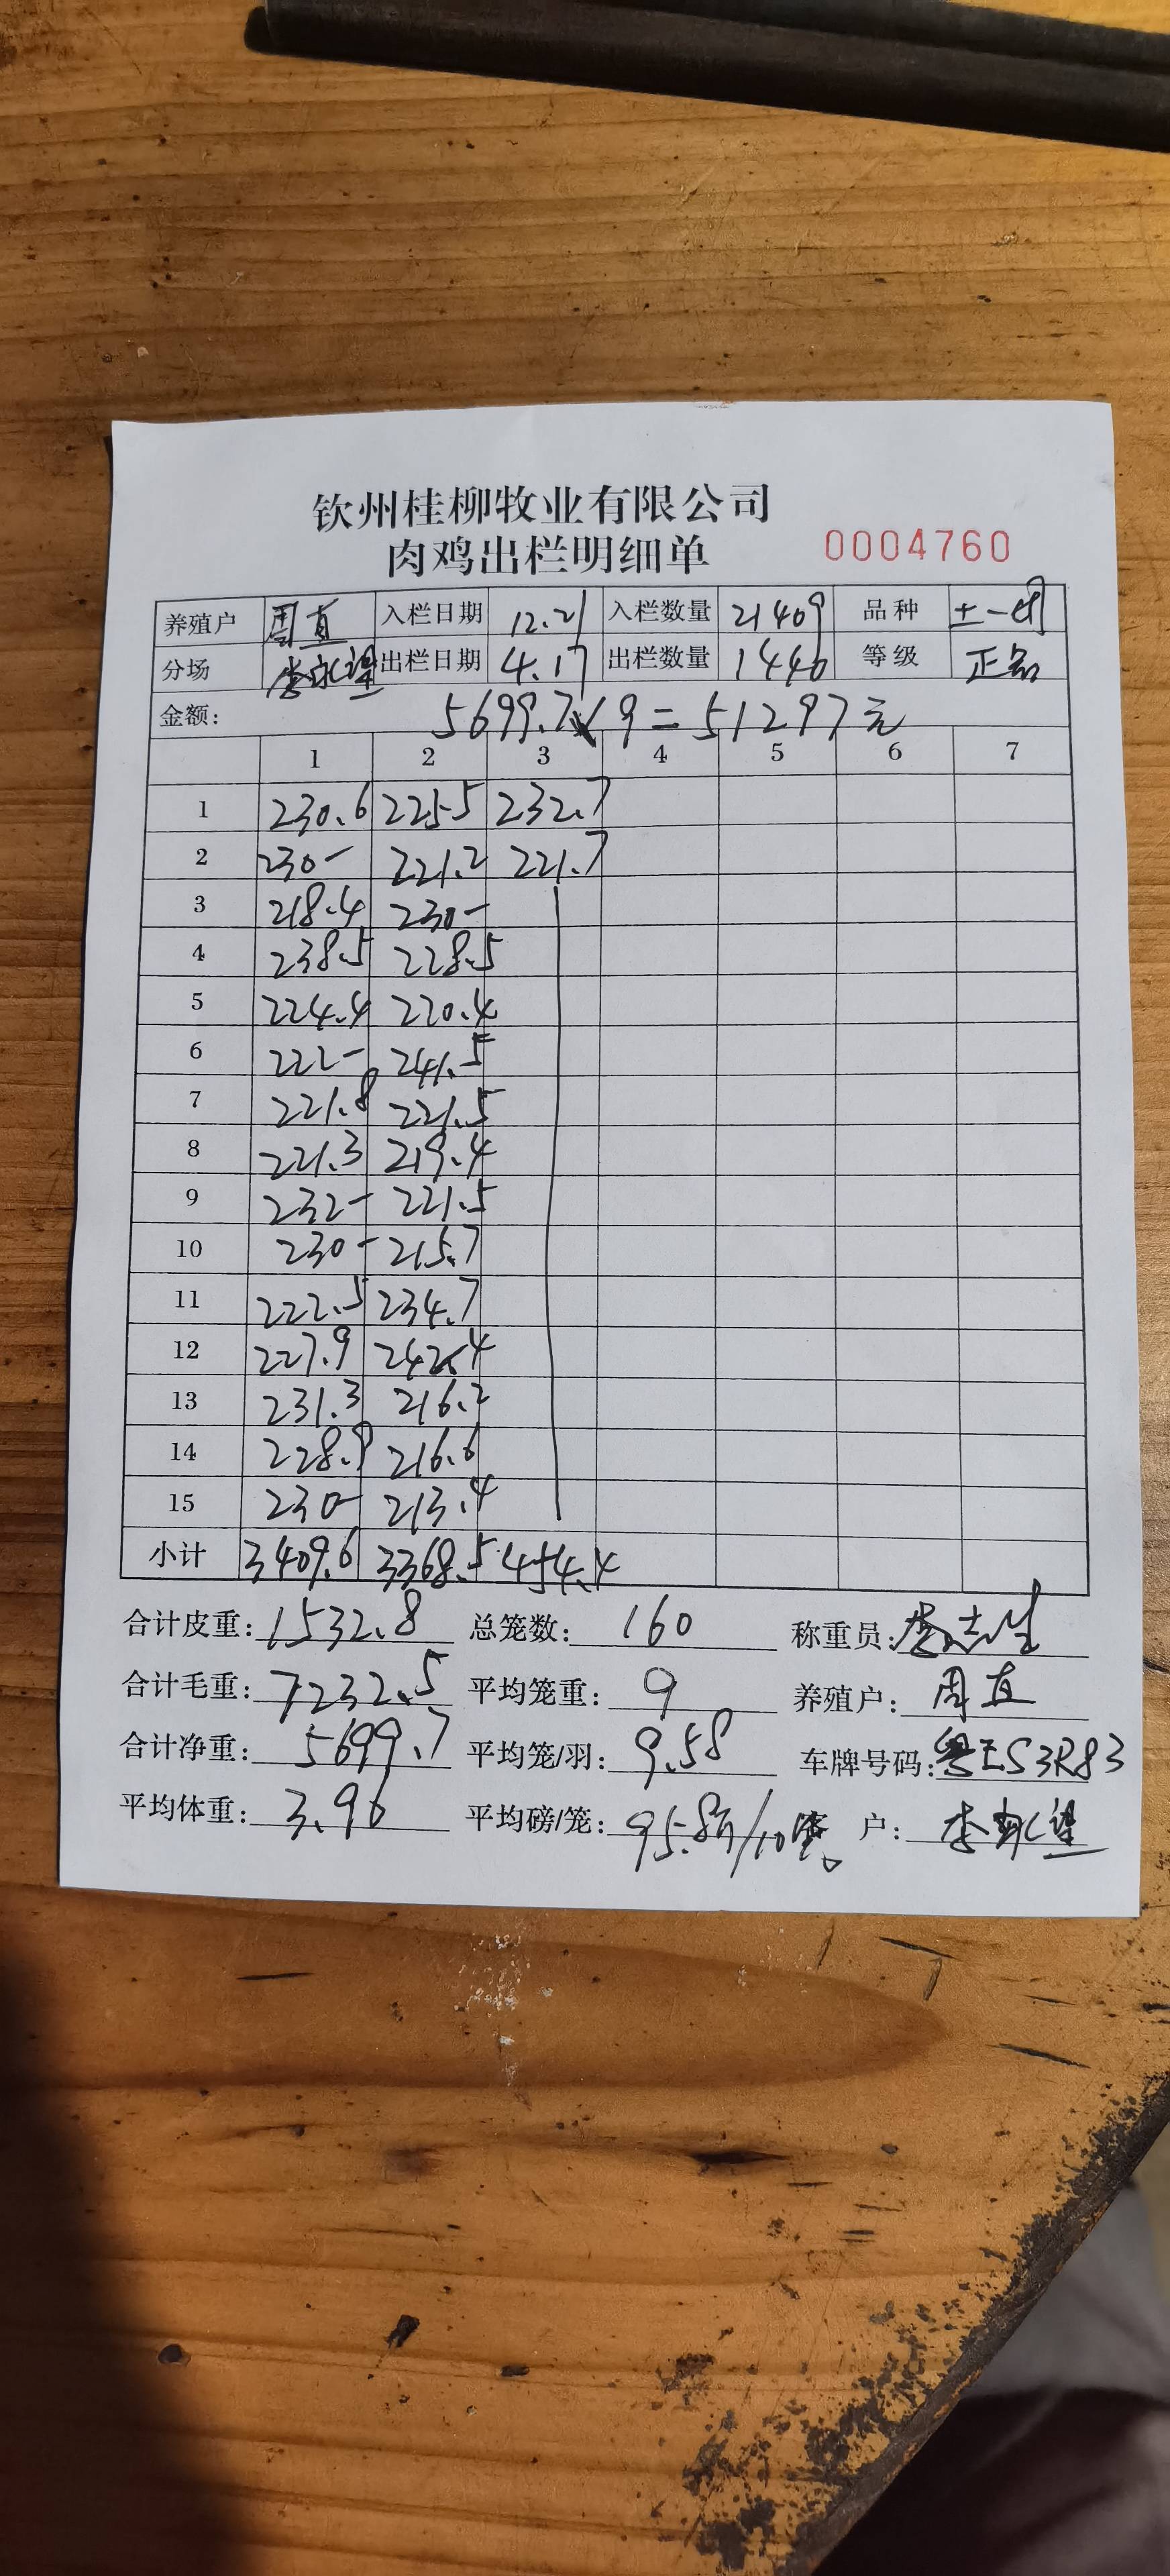 钦州桂柳牧业有限公司
肉鸡出栏明细单 0004760
养殖户 周直 入栏日期 12.21 入栏数量 21409 品种 土一
分场 李永望 出栏日期 4.17 出栏数量 1440 等级 正品
金额: 5699.7×9=51297元
1 2 3 4 5 6 7
1 230.6 225.5 232.7
2 230- 221.2 221.7
3 218.4 230-
4 238.5 228.5
5 224.4 220.4
6 222- 241.5
7 221.8 221.5
8 221.3 219.4
9 232- 221.5
10 230- 215.7
11 222.5 234.7
12 227.9 242.4
13 231.3 216.2
14 228.9 216.6
15 230- 213.4
小计 3409.6 3368.5 454.4
合计皮重: 1532.8 总笼数: 160 称重员: 李志生
合计毛重: 7232.5 平均笼重: 9 养殖户: 周直
合计净重: 5699.7 平均笼/羽: 9.58 车牌号码: 粤ES3R83
平均体重: 3.96 平均磅/笼: 95.8斤/10 户: 李永望